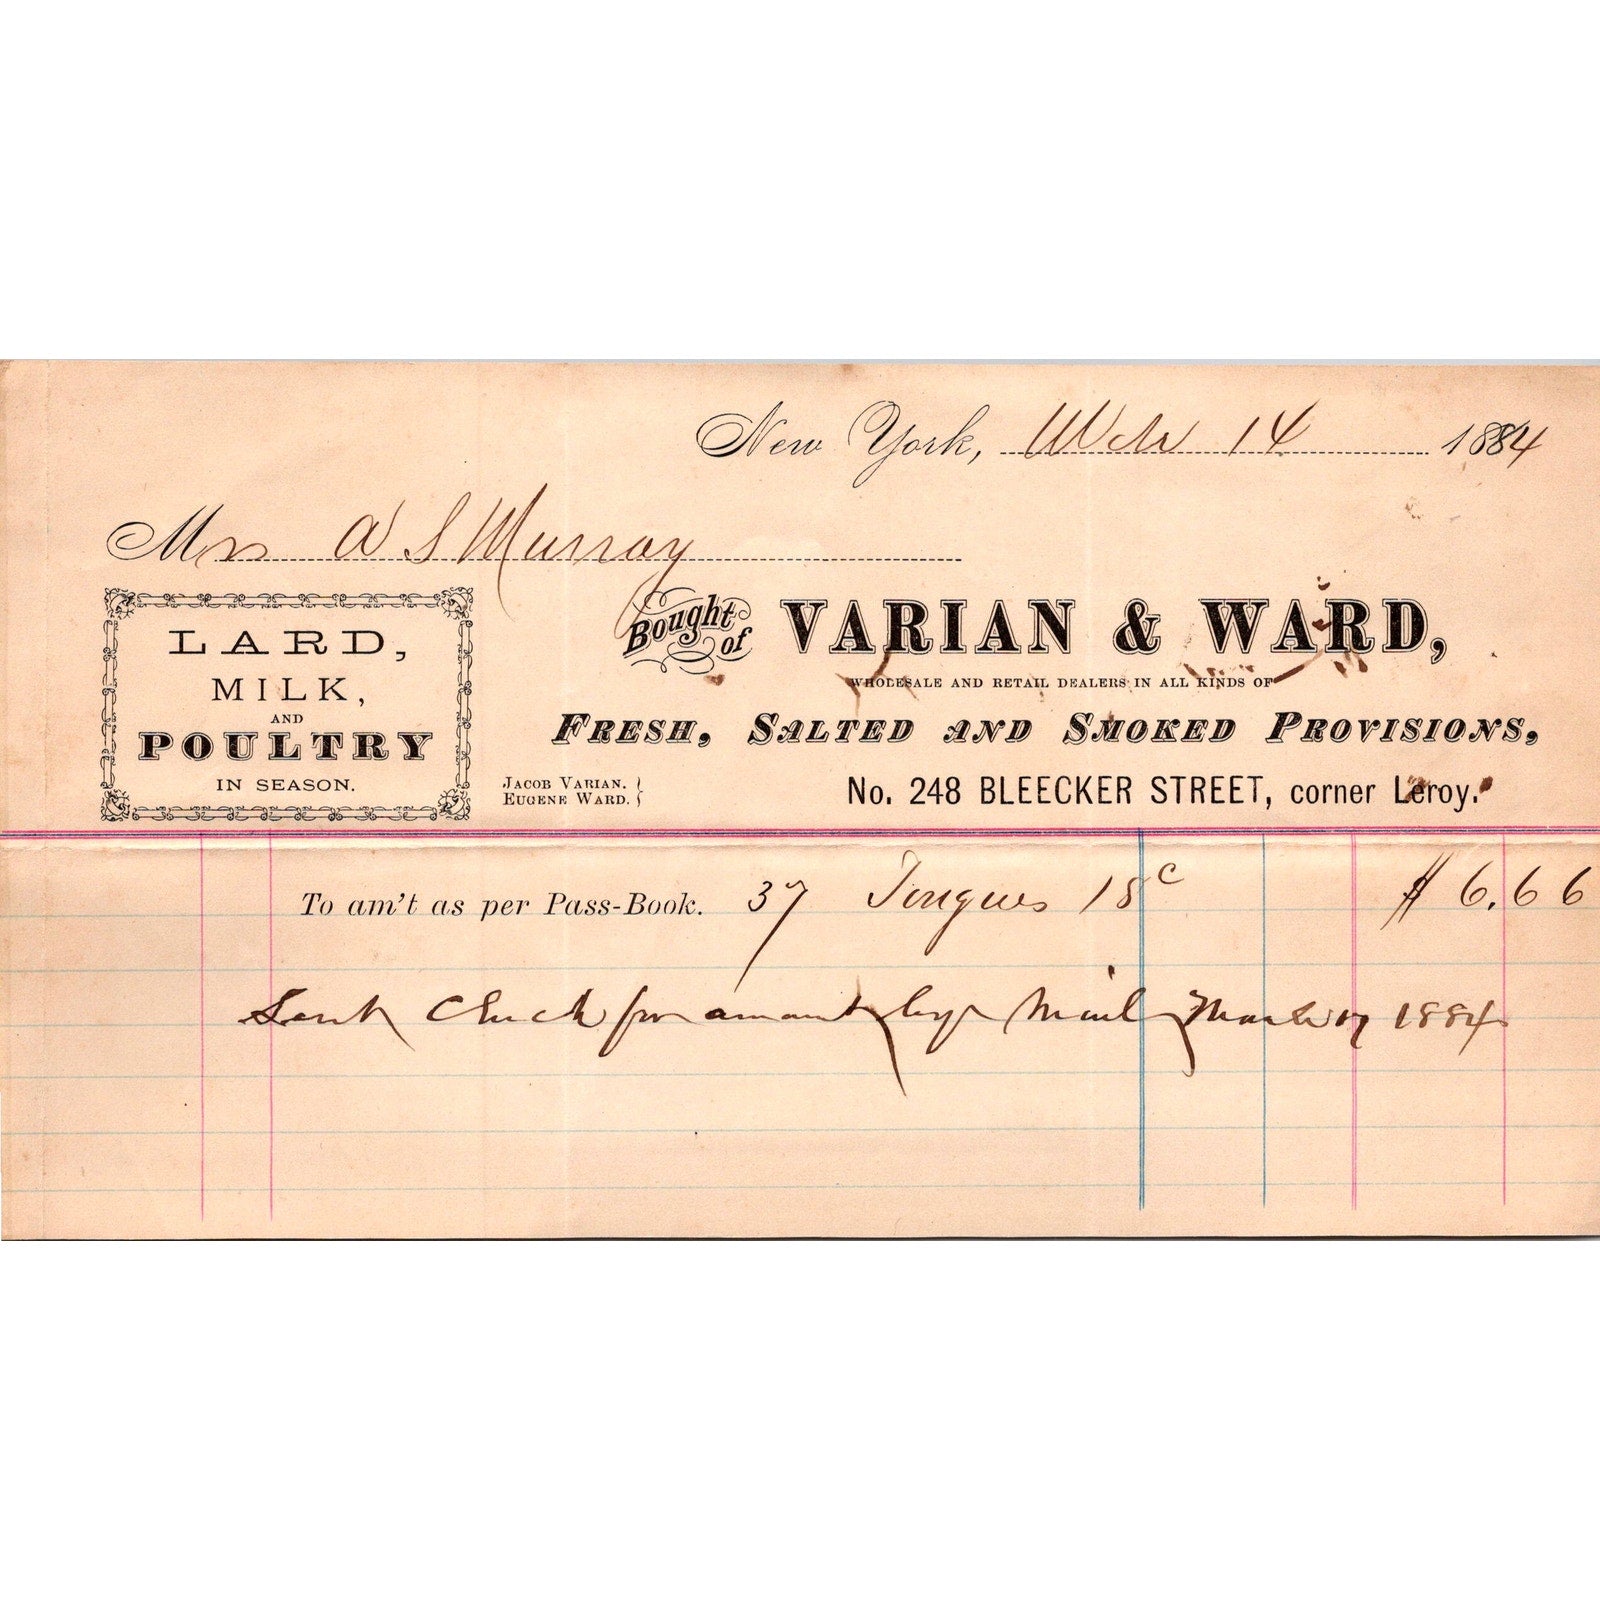 New York, Mch 14 1884
Mrs A S Murray
LARD,
MILK,
AND
POULTRY
IN SEASON.
Bought of VARIAN & WARD,
WHOLESALE AND RETAIL DEALERS IN ALL KINDS OF
FRESH, SALTED AND SMOKED PROVISIONS,
JACOB VARIAN.
EUGENE WARD.
No. 248 BLEECKER STREET, corner Leroy.
To am't as per Pass-Book. 37 Tongues 18c $ 6.66
Sent Check for amount by Mail March 17 1884